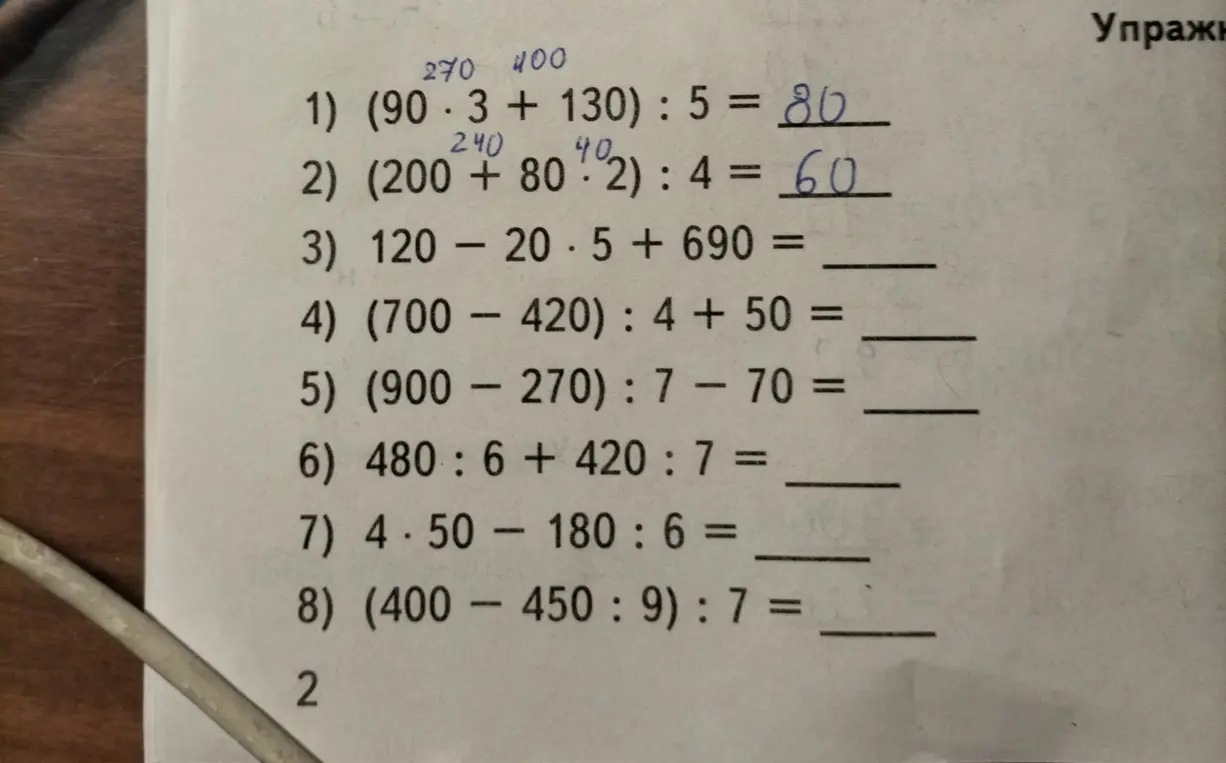 Упраж
270 400
1) (90 · 3 + 130) : 5 = 80
240 40
2) (200 + 80 · 2) : 4 = 60
3) 120 − 20 · 5 + 690 = ____
4) (700 − 420) : 4 + 50 = ____
5) (900 − 270) : 7 − 70 = ____
6) 480 : 6 + 420 : 7 = ____
7) 4 · 50 − 180 : 6 = ____
8) (400 − 450 : 9) : 7 = ____
2